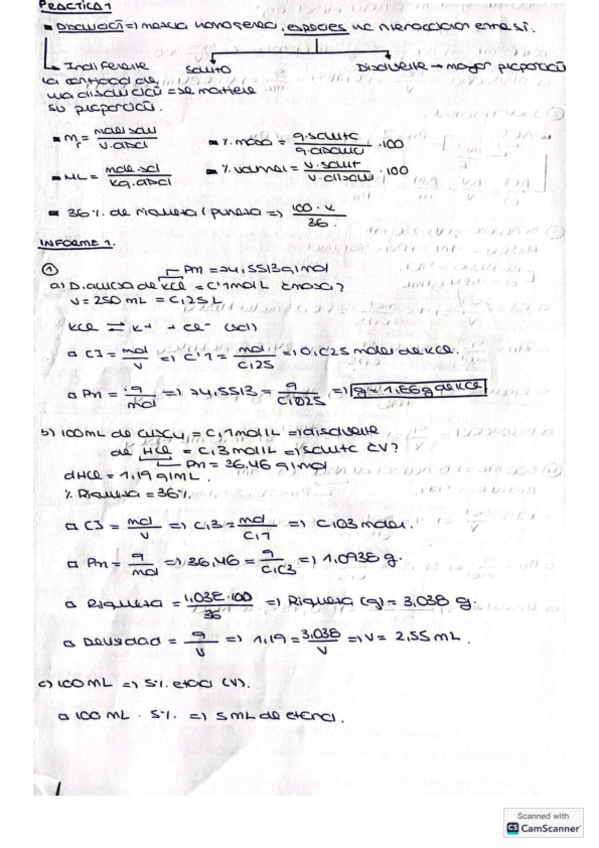 PRACTICA 1
Disolució => mezcla homogénea, especies no interaccionan entre sí.
Indiferente Soluto Disolvente → mayor proporción
la cantidad de
una disolución = se mantiene
su proporción.
M = / V. disol % masa = g. soluto / g. disoluc · 100
mol. sol / kg. disol % volumen = V. solut / V. disoluc · 100
36 % de riqueza (pureza => 100 · x / 36 .
INFORME 1.
① Pm = 74,5513 g/mol
a) D. acuosa de KCl = 0'1 mol/L ¿masa?
V = 250 mL = 0,25 L
KCl ⇌ K+ + Cl- (sol)
= mol / V => 0'1 = mol / 0,25 => 0,025 moles de KCl.
Pm = g / mol => 74,5513 = g / 0,025 => g = 1,86 g de KCl
b) 100 mL de = 0,1 mol/L => disolvente
de HCl = 0,3 mol/L => soluto ¿V?
Pm = 36,46 g/mol
dHCl = 1,19 g/mL.
% Riqueza = 36%.
= mol / V => 0,3 = mol / 0,1 => 0,03 moles.
Pm = g / mol => 36,46 = g / 0,03 => 1,0938 g.
Riqueza = 100 / 36 => Riqueza (g) = 3,038 g.
Densidad = g / V => 1,19 = 3,038 / V => V = 2,55 mL.
c) 100 mL => 5% etanol (V).
100 mL · 5% => 5 mL de etanol.
Scanned with
CS CamScanner